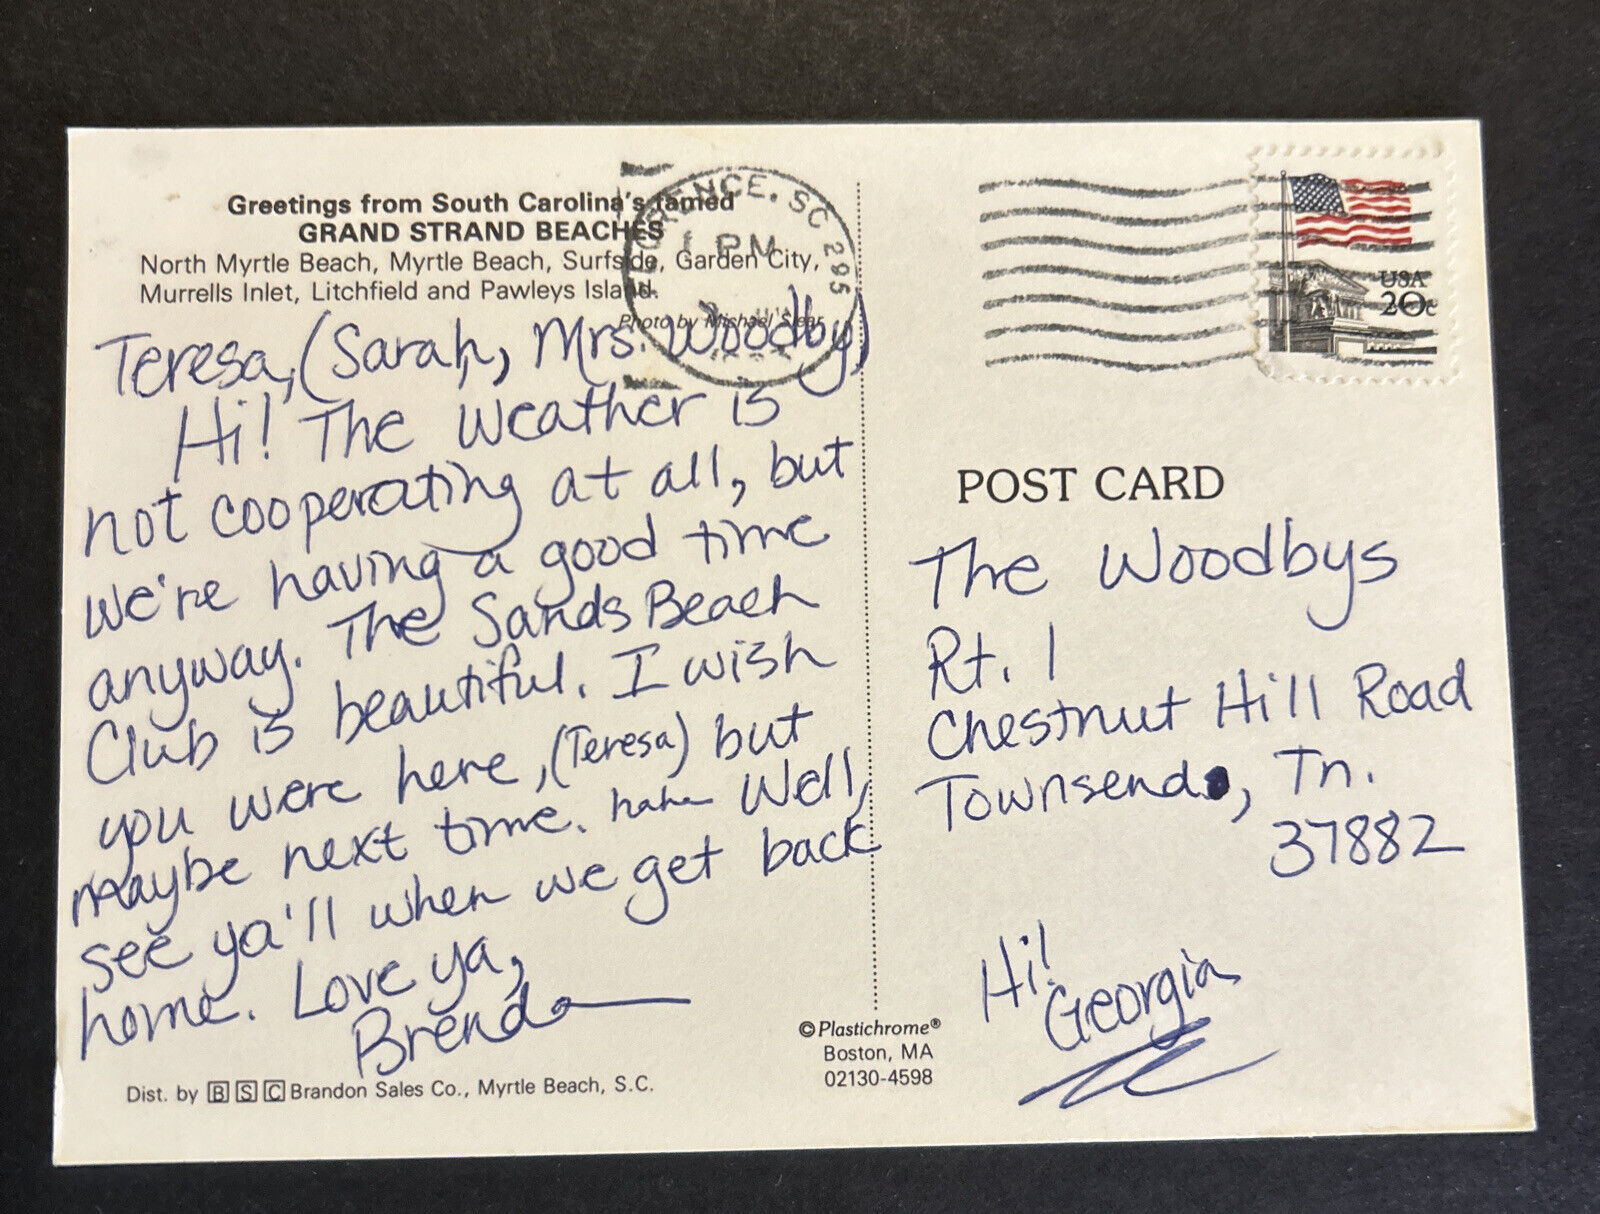 Greetings from South Carolina's famed
GRAND STRAND BEACHES
North Myrtle Beach, Myrtle Beach, Surfside, Garden City,
Murrells Inlet, Litchfield and Pawleys Island.
Photo by Michael Slear
FLORENCE, SC 295
PM
USA
20c
Teresa, (Sarah, Mrs. Woodby)
Hi! The weather is
not cooperating at all, but
we're having a good time
anyway. The Sands Beach
Club is beautiful. I wish
you were here, (Teresa) but
maybe next time. haha Well,
see ya'll when we get back
home. Love ya,
Brenda
Dist. by BSC Brandon Sales Co., Myrtle Beach, S.C.
© Plastichrome®
Boston, MA
02130-4598
POST CARD
The Woodbys
Rt. 1
Chestnut Hill Road
Townsend, Tn.
37882
Hi!
Georgia